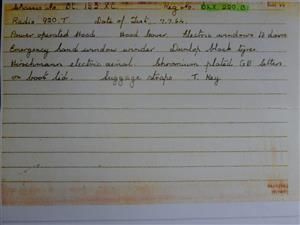 Chassis No. BC. 18 S XC. Reg. No. BXX 200 B.
Radio 920. T. Date of Test. 7.7.64.
Power operated Hood Hood cover. Electric windows 12 down
Emergency hand window winder. Dunlop black tyres.
Hirschmann electric aerial. Chromium plated GB letters
on boot lid. Luggage straps T. Key